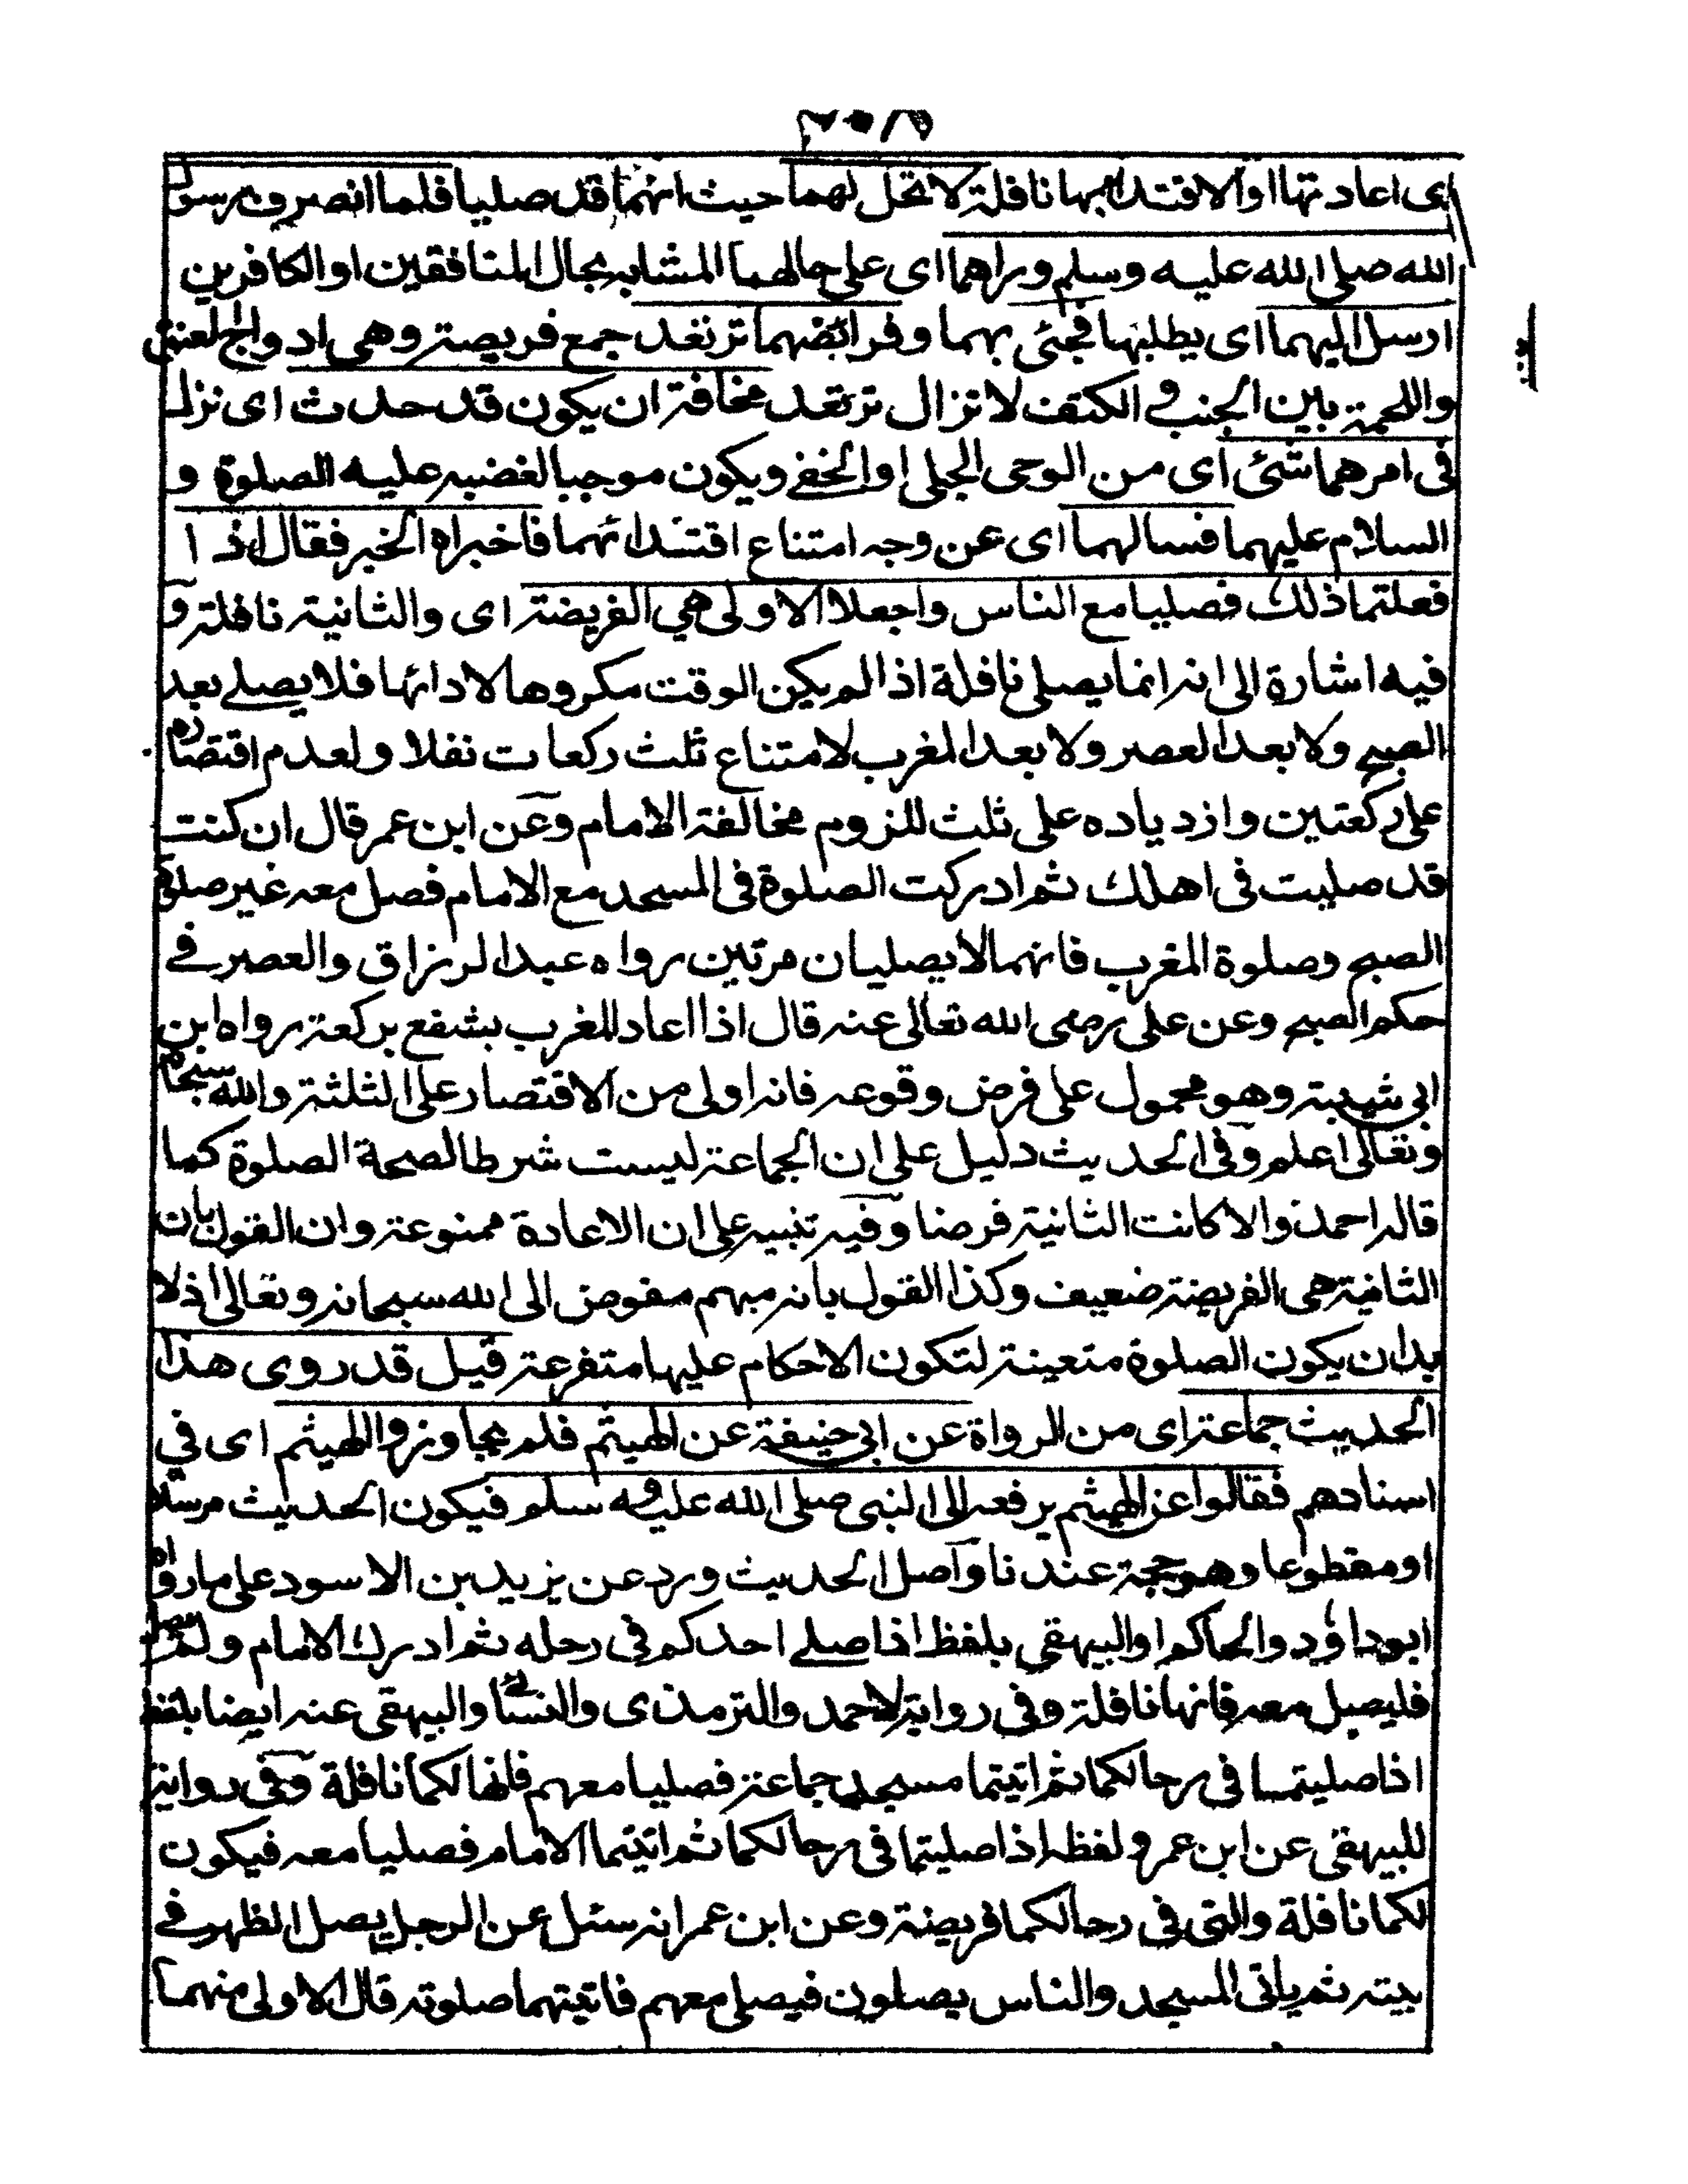 اى اعادتها او الاقتداء بها نافلة لا تحل لهما حيث انهما قد صليا فلما انصرف رسول
الله صلى الله عليه وسلم وراهما اى على حالهما المشابه بحال المنافقين او الكافرين
ارسل اليهما اى يطلبها فجئى بهما وفرائضهما ترتعد جمع فريصة وهى اوداج العنق
واللحمة بين الجنب فى الكتف لا تزال ترتعد مخافة ان يكون قد حدث اى نزل
فى امرهما شئى اى من الوحى الجلى او الخفے ويكون موجبا لغضبه عليه الصلوة و
السلام عليهما فسالهما اى عن وجه امتناع اقتدائهما فاخبراه الخبر فقال اذ ا
فعلتما ذلك فصليا مع الناس واجعلا الاولى هي الفريضة اى والثانية نافلة و
فيه اشارة الى انه انما يصلى نافلة اذا لم يكن الوقت مكروها لادائها فلا يصلے بعد
الصبح ولا بعد العصر ولا بعد المغرب لامتناع ثلث ركعات نفلا ولعدم اقتصاره
على ركعتين وازدياده على ثلث للزوم مخالفة الامام وعن ابن عمر قال ان كنت
قد صليت فى اهلك ثم ادركت الصلوة فى المسجد مع الامام فصل معه غير صلوة
الصبح وصلوة المغرب فانهما لا يصليان مرتين رواه عبد الرزاق والعصر فے
حكم الصبح وعن على رضى الله تعالى عنه قال اذا اعاد المغرب يشفع بركعة رواه ابن
ابى شيبة وهو محمول على فرض وقوعه فانه اولى من الاقتصار على الثلثة والله سبحانه
وتعالى اعلم وفى الحديث دليل على ان الجماعة ليست شرطا لصحة الصلوة كما
قاله احمد والا كانت الثانية فرضا وفيه تنبيه على ان الاعادة ممنوعة وان القول بان
الثانية هى الفريضة ضعيف وكذا القول بانه مبهم مفوض الى الله سبحانه وتعالى اذ لا
بد ان يكون الصلوة متعينة لتكون الاحكام عليها متفرعة قيل قد روى هذا
الحديث جماعة اى من الرواة عن ابى حنيفة عن الهيثم فلم يجاوزوا الهيثم اى في
اسنادهم فقالوا عن الهيثم يرفعه الى النبى صلى الله عليه و سلم فيكون الحديث مرسلا
او مقطوعا وهو حجة عندنا واصل الحديث ورد عن يزيد بن الاسود على ما رواه
ابو داؤد والحاكم والبيهقى بلفظ اذا صلے احدكم فى رحله ثم ادرك الامام ولم يصل
فليصل معه فانها نافلة وفى رواية لاحمد والترمذى والنسائى والبيهقى عنه ايضا بلفظ
اذا صليتما فى رحالكما ثم اتيتما مسجد جماعة فصليا معهم فانها لكما نافلة وفى رواية
للبيهقى عن ابن عمر و لفظه اذا صليتما فى رحالكما ثم اتيتما الامام فصليا معه فيكون
لكما نافلة والتى فى رحالكما فريضة وعن ابن عمر انه سئل عن الرجل يصل الظهر فے
بيته ثم ياتى المسجد والناس يصلون فيصلى معهم فاتيتهما صلوته قال الاولى منهما